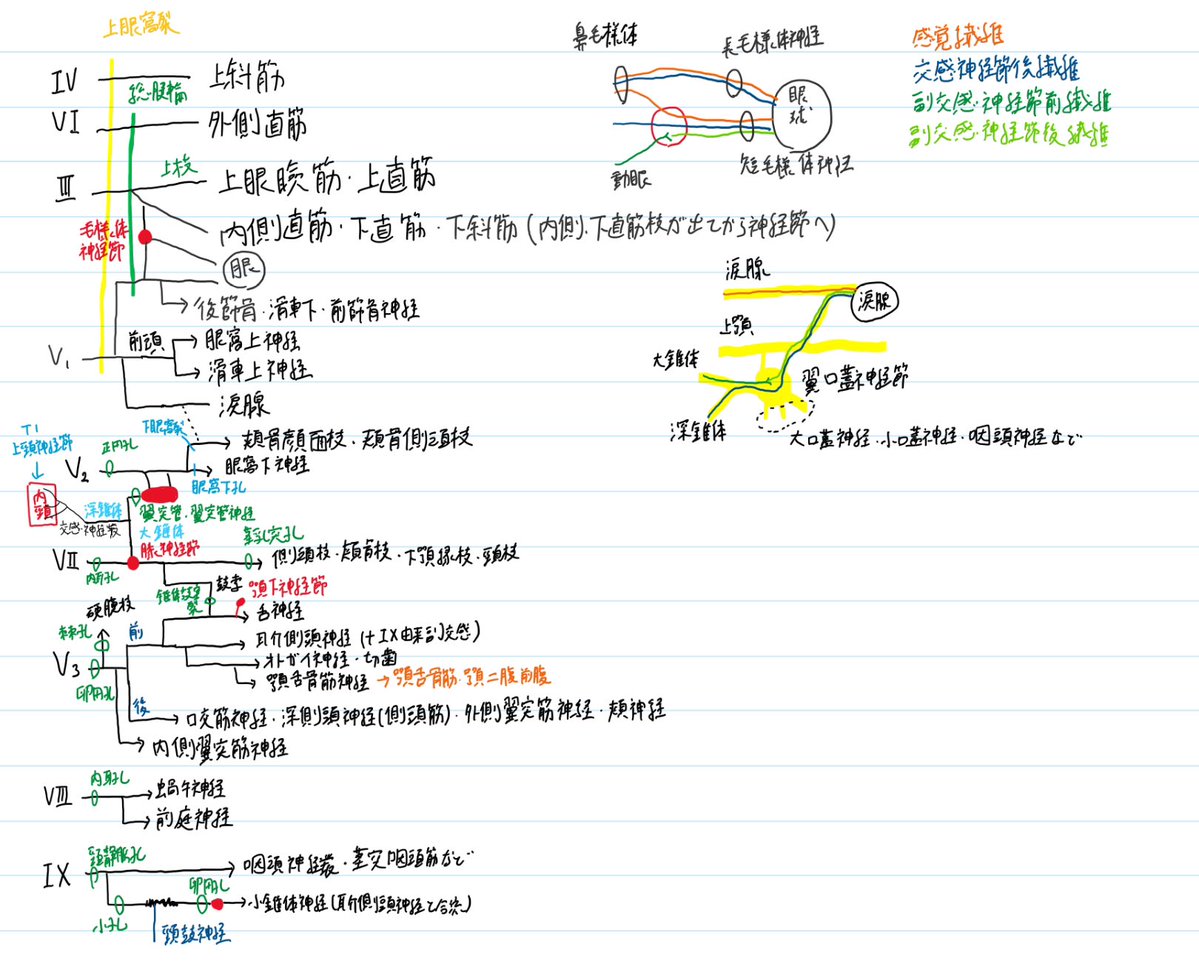 上眼窩裂
IV 上斜筋
総腱輪
VI 外側直筋
III 上枝 上眼瞼筋・上直筋
内側直筋・下直筋・下斜筋(内側、下直筋枝が出てから神経節へ)
毛様体
神経節
眼
後篩骨・滑車下・前篩骨神経
V₁ 前頭 眼窩上神経
滑車上神経
涙腺
鼻毛様体
長毛様体神経
眼球
短毛様体神経
動眼
感覚繊維
交感神経節後繊維
副交感神経節前繊維
副交感神経節後繊維
涙腺
涙腺
上顎
大錐体
翼口蓋神経節
深錐体
大口蓋神経・小口蓋神経・咽頭神経など
T1
上頸神経節
内頸
V₂ 正円孔
下眼窩裂
頬骨顔面枝・頬骨側頭枝
眼窩下神経
眼窩下孔
翼突管・翼突管神経
深錐体
交感神経叢
大錐体
膝神経節
VII 内耳孔
茎乳突孔
側頭枝・頬骨枝・下顎縁枝・頸枝
鼓索
錐体鼓室裂
顎下神経節
舌神経
硬膜枝
棘孔
V₃ 卵円孔
前
耳介側頭神経(+IX由来副交感)
オトガイ神経・切歯
顎舌骨筋神経→顎舌骨筋・顎二腹前腹
後
咬筋神経・深側頭神経(側頭筋)・外側翼突筋神経・頬神経
内側翼突筋神経
VIII 内耳孔
蝸牛神経
前庭神経
IX 頸静脈孔
咽頭神経叢・茎突咽頭筋など
卵円孔
小錐体神経(耳介側頭神経と合流)
小孔
頸鼓神経